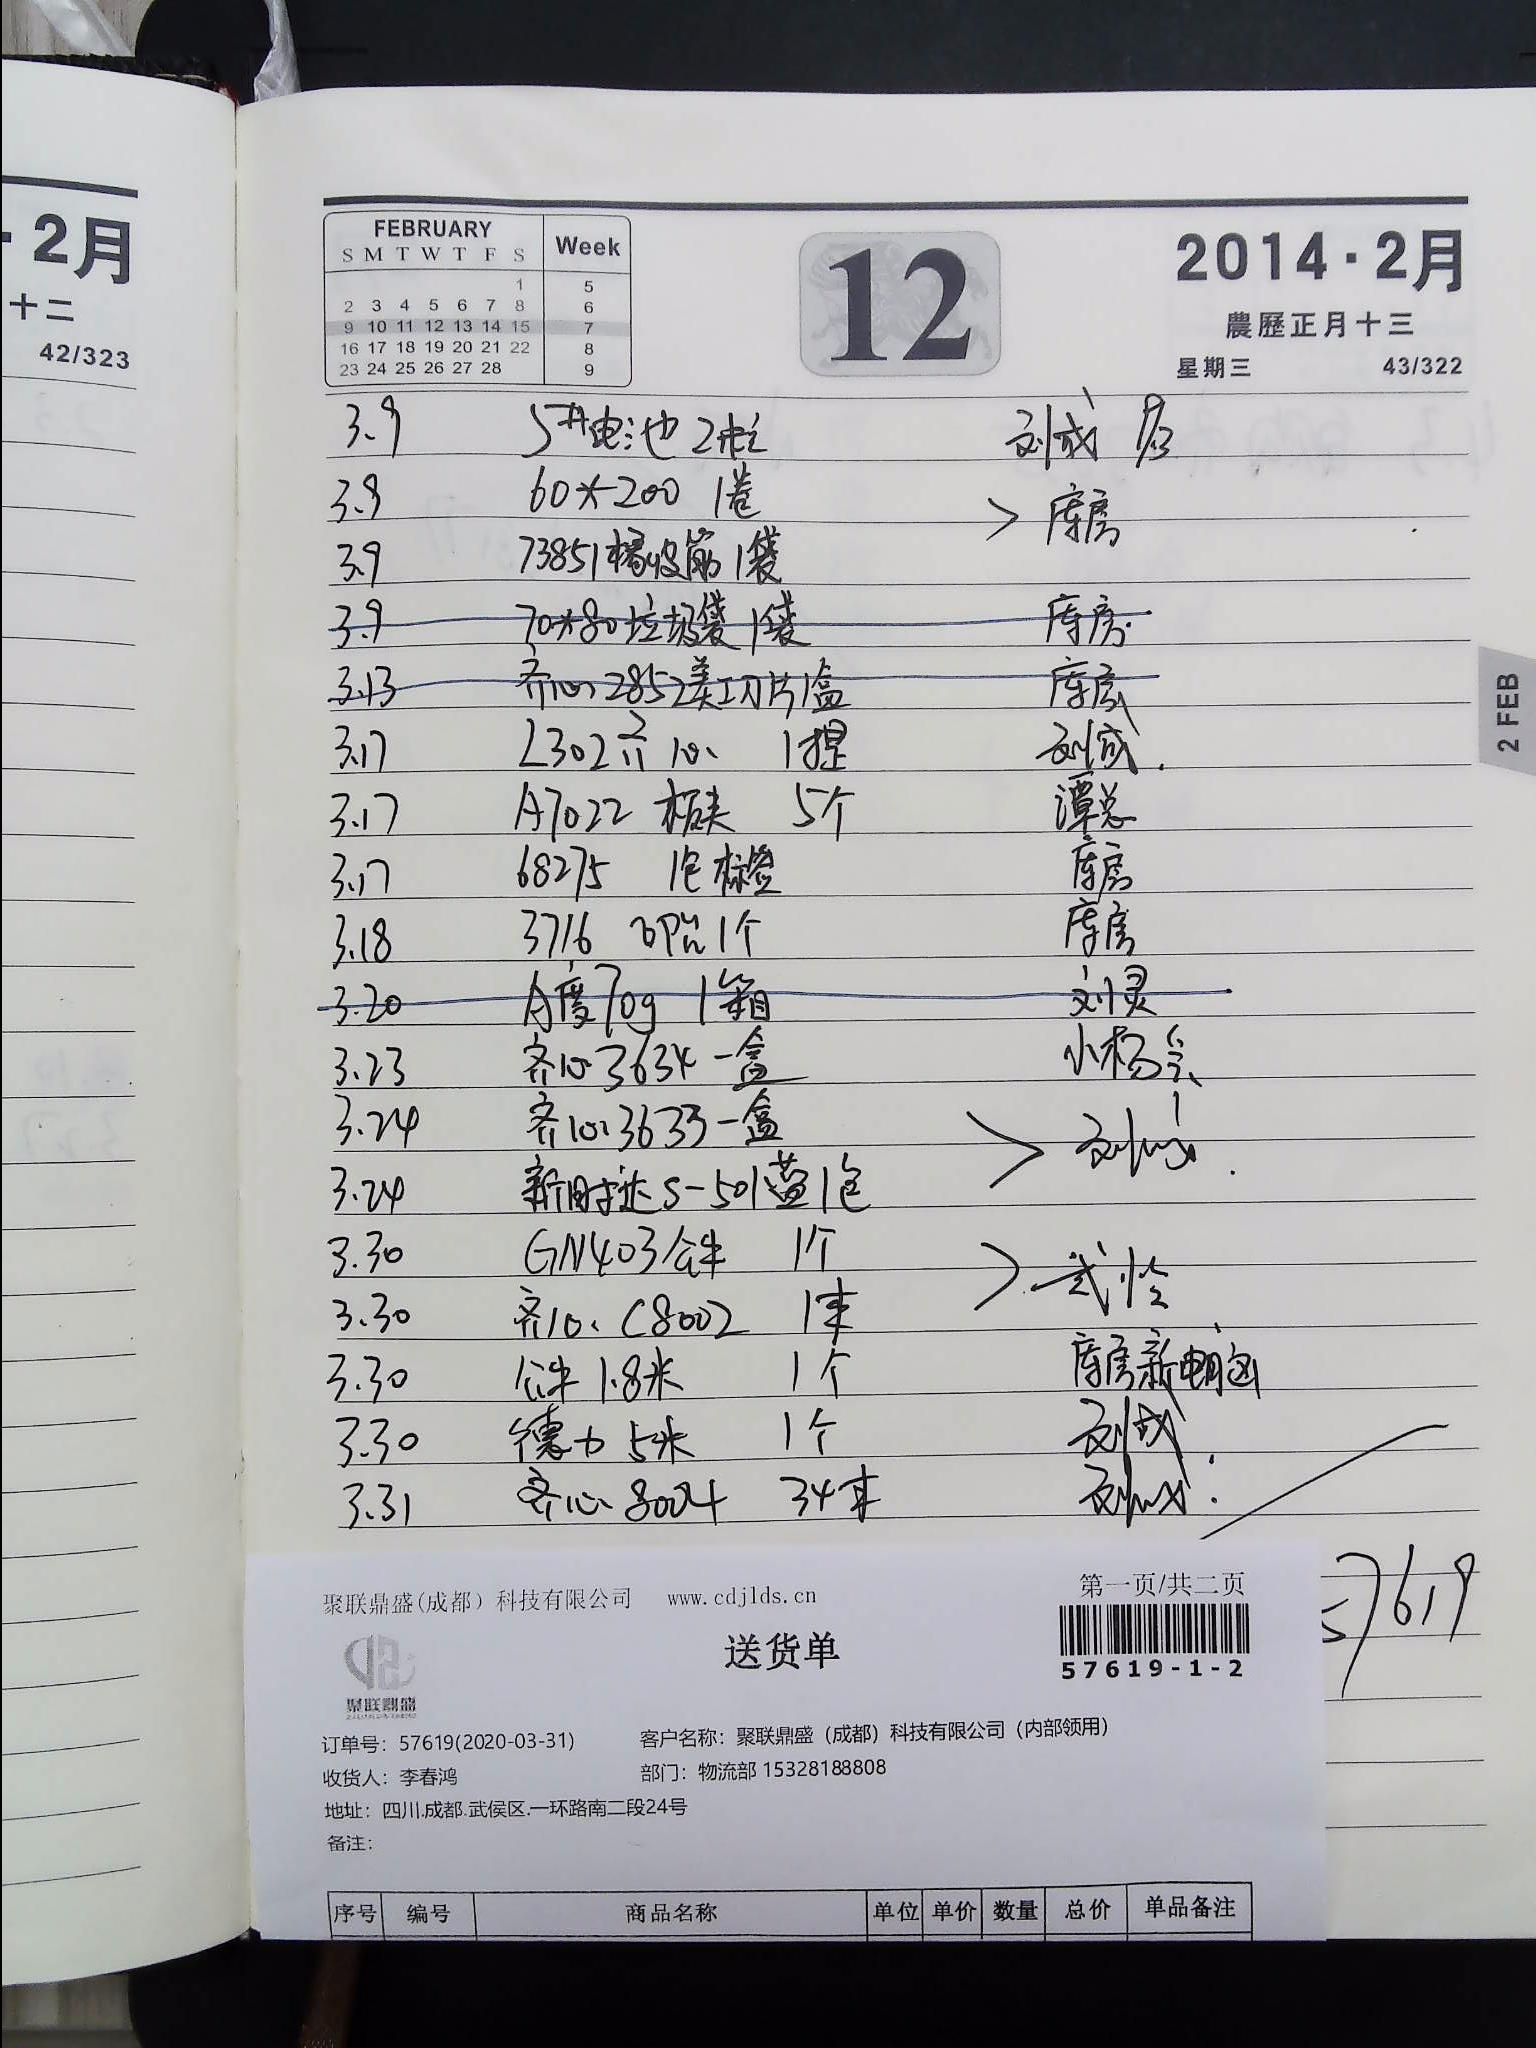 · 2月
十二
42/323
FEBRUARY Week
S M T W T F S
1 5
2 3 4 5 6 7 8 6
9 10 11 12 13 14 15 7
16 17 18 19 20 21 22 8
23 24 25 26 27 28 9
12
2014 · 2月
農歷正月十三
星期三 43/322
2 FEB
3.9 5#电池 2 刘成
3.9 60*200 1卷 > 库房
3.9 73851橡皮筋1袋
3.9 70*80垃圾袋1袋 库房
3.13 齐心2852美工刀片1盒 库房
3.17 L302齐心 1提 刘成
3.17 A7022 板夹 5个 潭总
3.17 68275 1包标签 库房
3.18 3716 印台1个 库房
3.20 A度70g 1箱 刘灵
3.23 齐心3634一盒 小杨
3.24 齐心3633一盒 > 刘成
3.24 新时达S-501蓝1包
3.30 GN403 1个 >
3.30 齐心C8002 1本
3.30 1.8米 1个 库房新电
3.30 德力5米 1个 刘成
3.31 齐心8004 34本 刘成
57619
聚联鼎盛(成都)科技有限公司 www.cdjlds.cn 第一页/共二页
聚联鼎盛
送货单
57619-1-2
订单号：57619(2020-03-31) 客户名称：聚联鼎盛（成都）科技有限公司（内部领用）
收货人：李春鸿 部门：物流部 15328188808
地址：四川.成都.武侯区.一环路南二段24号
备注：
序号 编号 商品名称 单位 单价 数量 总价 单品备注